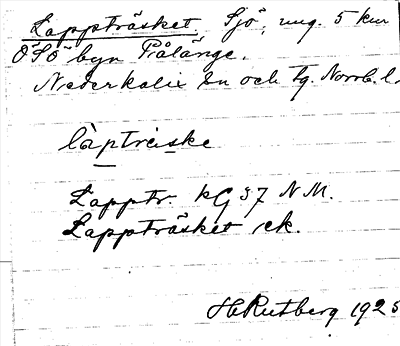 Lappträsket, Sjö, ung. 5 km
ÖSÖ byn Pålänge.
Nederkalix sn och tg. Norrb. l.
làptrèiske
Lapptr. kG 57 N M.
Lappträsket ek.
H Rutberg 1925